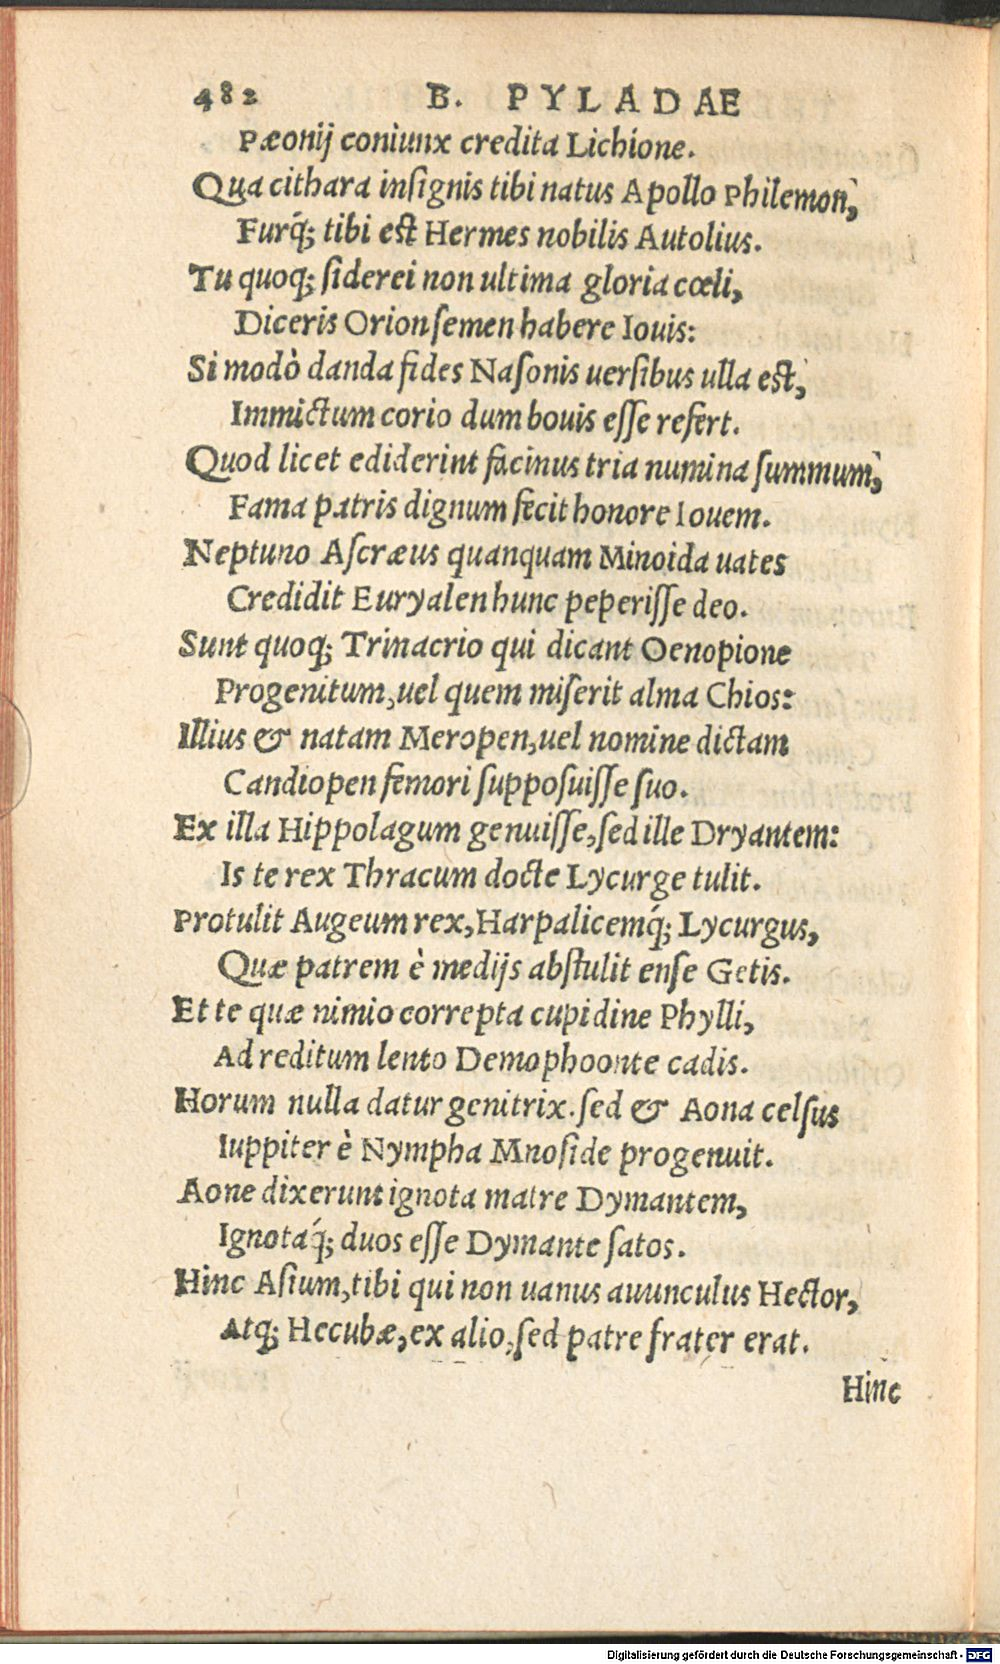 482 B. PYLADAE
Pæonij coniunx credita Lichione.
Qua cithara inſignis tibi natus Apollo Philemon,
Furq́; tibi eſt Hermes nobilis Autolius.
Tu quoq; ſiderei non ultima gloria cœli,
Diceris Orion ſemen habere Iouis:
Si modò danda fides Naſonis uerſibus ulla eſt,
Immictum corio dum bouis eſſe refert.
Quod licet ediderint facinus tria numina ſummum,
Fama patris dignum fecit honore Iouem.
Neptuno Aſcræus quanquam Minoida uates
Credidit Euryalen hunc peperiſſe deo.
Sunt quoq; Trinacrio qui dicant Oenopione
Progenitum, uel quem miſerit alma Chios:
Illius & natam Meropen, uel nomine dictam
Candiopen femori ſuppoſuiſſe ſuo.
Ex illa Hippolagum genuiſſe, ſed ille Dryantem:
Is te rex Thracum docte Lycurge tulit.
Protulit Augeum rex, Harpalicemq́; Lycurgus,
Quæ patrem è medijs abſtulit enſe Getis.
Et te quæ nimio correpta cupidine Phylli,
Ad reditum lento Demophoonte cadis.
Horum nulla datur genitrix. ſed & Aona celſus
Iuppiter è Nympha Mnoſide progenuit.
Aone dixerunt ignota matre Dymantem,
Ignotaq́; duos eſſe Dymante ſatos.
Hinc Aſium, tibi qui non uanus auunculus Hector,
Atq; Hecubæ, ex alio, ſed patre frater erat.
Hinc
Digitalisierung gefördert durch die Deutsche Forschungsgemeinschaft - DFG